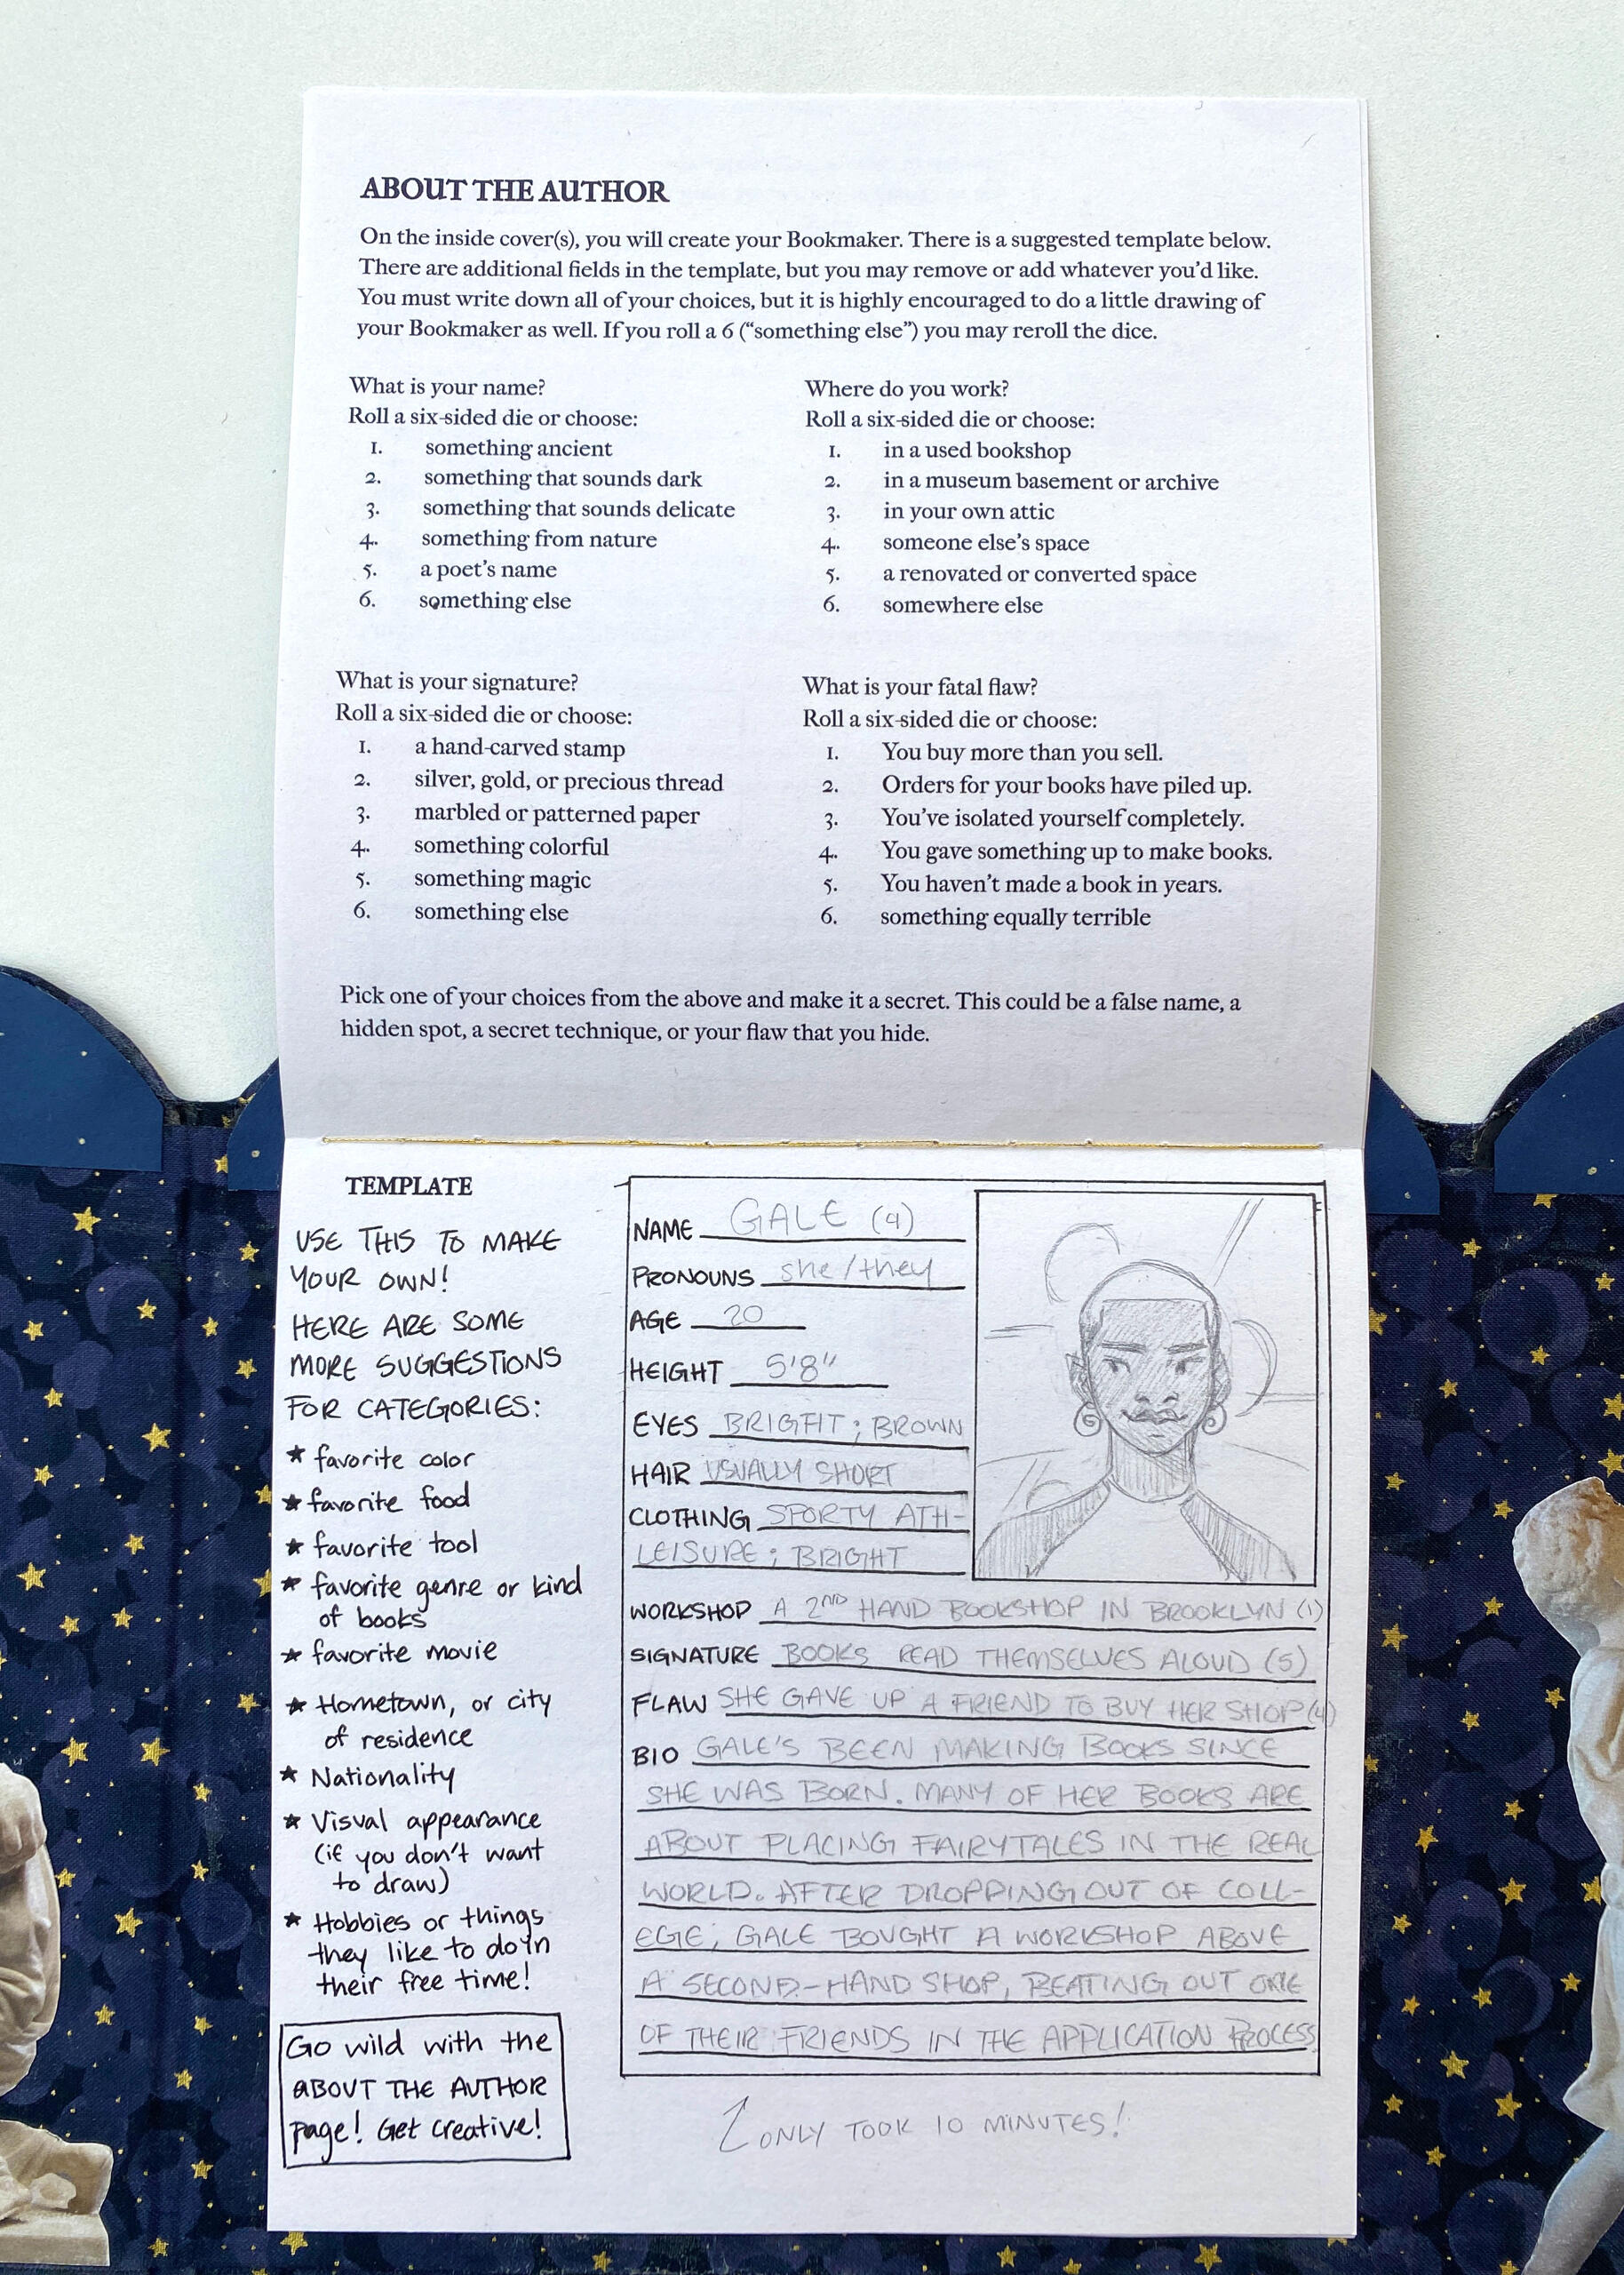 ABOUT THE AUTHOR
On the inside cover(s), you will create your Bookmaker. There is a suggested template below.
There are additional fields in the template, but you may remove or add whatever you'd like.
You must write down all of your choices, but it is highly encouraged to do a little drawing of
your Bookmaker as well. If you roll a 6 ("something else") you may reroll the dice.
What is your name?
Roll a six-sided die or choose:
1. something ancient
2. something that sounds dark
3. something that sounds delicate
4. something from nature
5. a poet's name
6. something else
Where do you work?
Roll a six-sided die or choose:
1. in a used bookshop
2. in a museum basement or archive
3. in your own attic
4. someone else's space
5. a renovated or converted space
6. somewhere else
What is your signature?
Roll a six-sided die or choose:
1. a hand-carved stamp
2. silver, gold, or precious thread
3. marbled or patterned paper
4. something colorful
5. something magic
6. something else
What is your fatal flaw?
Roll a six-sided die or choose:
1. You buy more than you sell.
2. Orders for your books have piled up.
3. You've isolated yourself completely.
4. You gave something up to make books.
5. You haven't made a book in years.
6. something equally terrible
Pick one of your choices from the above and make it a secret. This could be a false name, a
hidden spot, a secret technique, or your flaw that you hide.
TEMPLATE
USE THIS TO MAKE
YOUR OWN!
HERE ARE SOME
MORE SUGGESTIONS
FOR CATEGORIES:
★ favorite color
★ favorite food
★ favorite tool
★ favorite genre or kind
of books
★ favorite movie
★ Hometown, or city
of residence
★ Nationality
★ Visual appearance
(if you don't want
to draw)
★ Hobbies or things
they like to do in
their free time!
Go wild with the
ABOUT THE AUTHOR
page! Get creative!
NAME GALE (4)
PRONOUNS she/they
AGE 20
HEIGHT 5'8"
EYES BRIGHT; BROWN
HAIR USUALLY SHORT
CLOTHING SPORTY ATH-
LEISURE; BRIGHT
WORKSHOP A 2ND HAND BOOKSHOP IN BROOKLYN (1)
SIGNATURE BOOKS READ THEMSELVES ALOUD (5)
FLAW SHE GAVE UP A FRIEND TO BUY HER SHOP (4)
BIO GALE'S BEEN MAKING BOOKS SINCE
SHE WAS BORN. MANY OF HER BOOKS ARE
ABOUT PLACING FAIRYTALES IN THE REAL
WORLD. AFTER DROPPING OUT OF COLL-
EGE, GALE BOUGHT A WORKSHOP ABOVE
A SECOND-HAND SHOP, BEATING OUT ONE
OF THEIR FRIENDS IN THE APPLICATION PROCESS
ONLY TOOK 10 MINUTES!